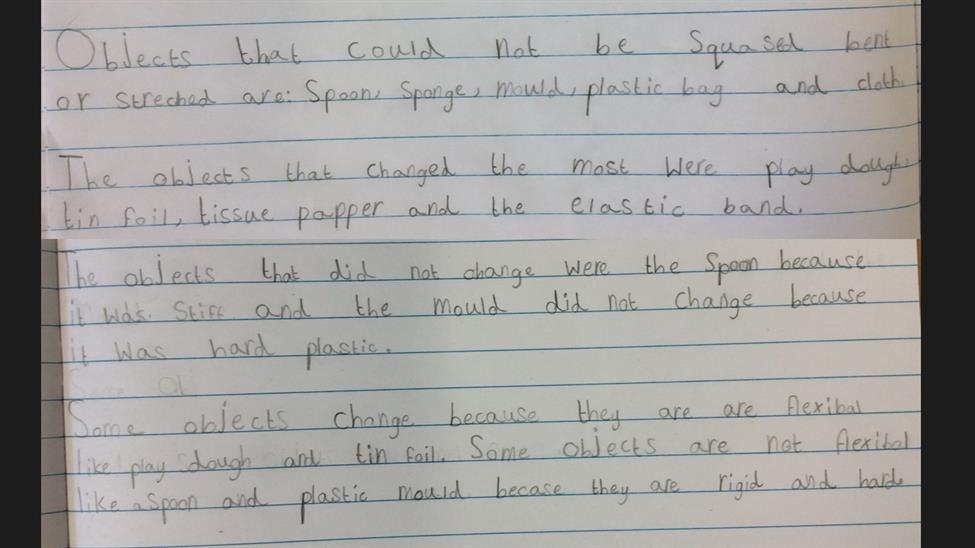 Objects that could not be Squased bent
or streched are: Spoon, Sponge, mould, plastic bag and cloth.
The objects that changed the most were play dough
tin foil, tissue papper and the elastic band.
The objects that did not change were the Spoon because
it was stiff and the mould did not change because
it was hard plastic.
Some objects change because they are are flexibal
like play dough and tin foil. Some objects are not flexibal
like a spoon and plastic mould becase they are rigid and hard.